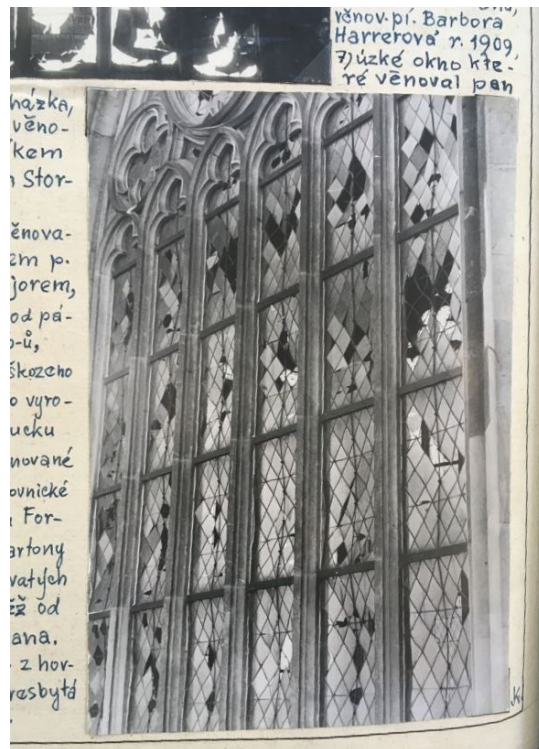 věnov. pí. Barbora
Harrerová r. 1909,
7) úzké okno kte-
ré věnoval pan
házka,
věno-
íkem
Stor-
ěnova-
em p.
jorem,
od pá-
o-ů,
škozeho
o vyro-
ucku
nované
ovnické
For-
artony
vatých
ěž od
ana.
z hor-
vesbytá